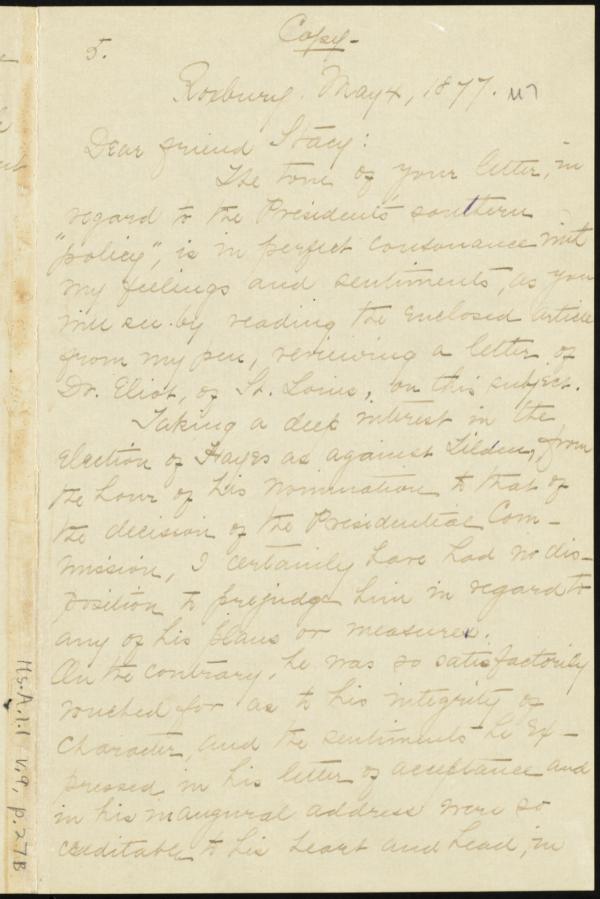 Copy-
5.
Roxbury. May 4, 1877.
Dear friend Stacy:
The tone of your letter, in
regard to the President's southern
"policy", is in perfect consonance with
my feelings and sentiments, as you
will see by reading the enclosed article
from my pen, reviewing a letter of
Dr. Eliot, of St. Louis, on this subject.
Taking a deep interest in the
election of Hayes as against Tilden, from
the hour of his nomination to that of
the decision of the Presidential Com-
mission, I certainly have had no dis-
position to prejudge him in regard to
any of his plans or measures.
On the contrary, he was so satisfactorily
vouched for as to his integrity of
character, and the sentiments he ex-
pressed in his letter of acceptance and
in his inaugural address were so
creditable to his heart and head, in
Ms.A.1.1 v.9, p.27B